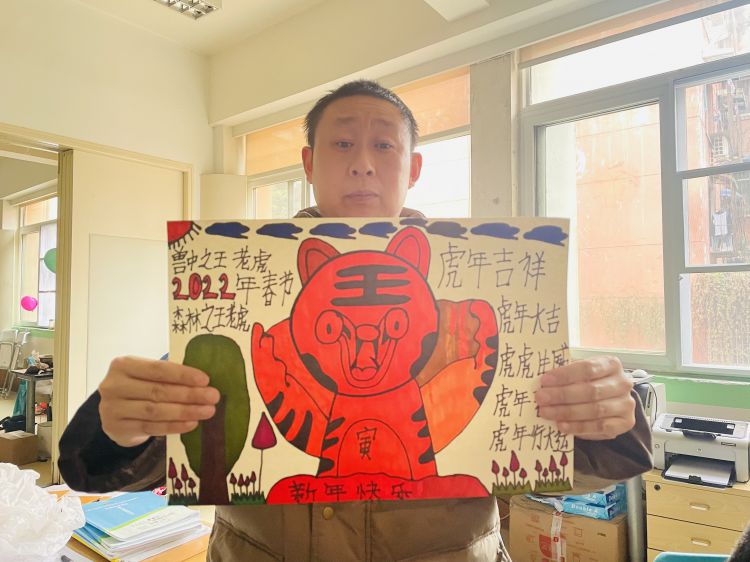 兽中之王 老虎
2022年春节
森林之王老虎
王
寅
新年快乐
虎年吉祥
虎年大吉
虎虎生威
虎年
虎年
Double A